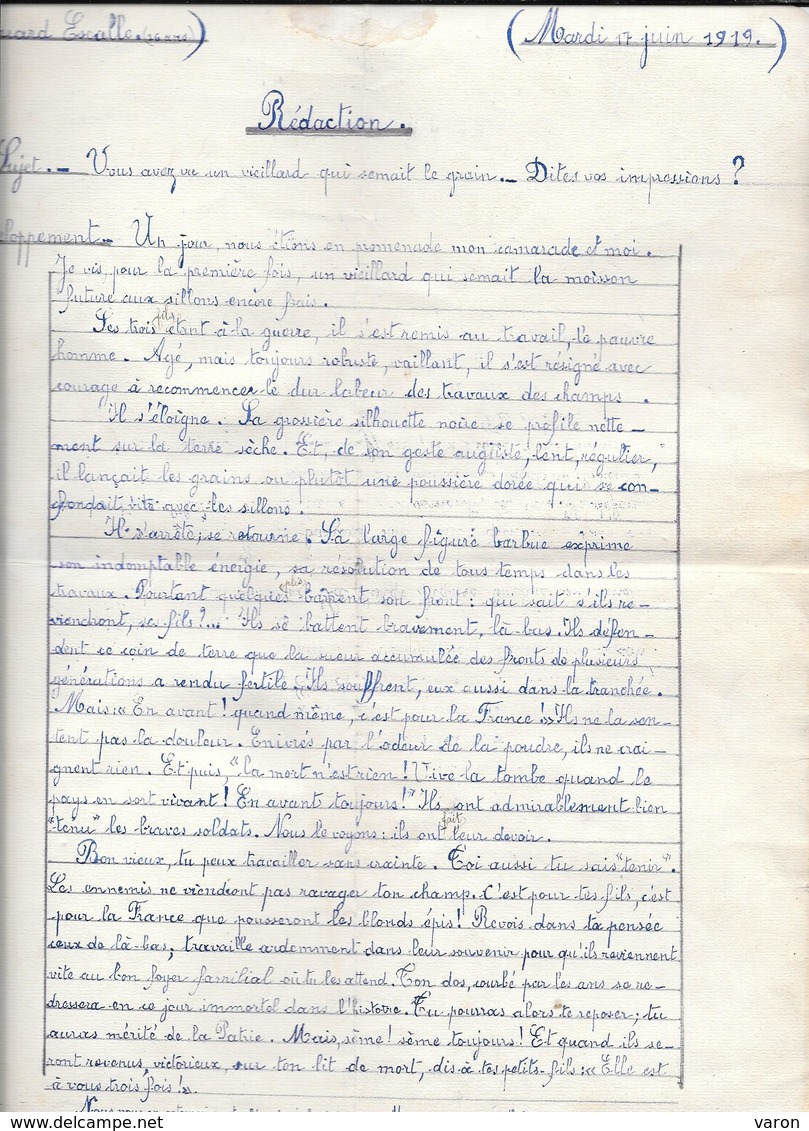 uard Escalle. (16 ans) (Mardi 17 juin 1919.)
Rédaction.
Sujet.— Vous avez vu un vieillard qui semait le grain.— Dites vos impressions ?
loppement— Un jour, nous étions en promenade mon camarade et moi.
Je vis, pour la première fois, un vieillard qui semait la moisson
future aux sillons encore frais.
Ses trois fils étant à la guerre, il s'est remis au travail, le pauvre
homme. Agé, mais toujours robuste, vaillant, il s'est résigné avec
courage à recommencer le dur labeur des travaux des champs.
Il s'éloigne. Sa grossière silhouette noire se profile nette-
ment sur la terre sèche. Et, de son geste auguste, lent, régulier,
il lançait les grains ou plutôt une poussière dorée qui se con-
fondait vite avec les sillons.
Il s'arrête; se retourne. Sa large figure barbue exprime
son indomptable énergie, sa résolution de tous temps dans les
travaux. Pourtant quelques plis barrent son front : qui sait s'ils re-
viendront, ses fils ?... Ils se battent bravement, là-bas. Ils défen-
dent ce coin de terre que la sueur accumulée des fronts de plusieurs
générations a rendu fertile. Ils souffrent, eux aussi dans la tranchée.
Mais : « En avant ! quand même, c'est pour la France ! » Ils ne la sen-
tent pas la douleur. Enivrés par l'odeur de la poudre, ils ne crai-
gnent rien. Et puis, "la mort n'est rien ! Vive la tombe quand le
pays en sort vivant ! En avant toujours !" Ils ont admirablement bien
"tenu" les braves soldats. Nous le voyons : ils ont fait leur devoir.
Bon vieux, tu peux travailler sans crainte. Toi aussi tu sais "tenir".
Les ennemis ne viendront pas ravager ton champ. C'est pour tes fils, c'est
pour la France que pousseront les blonds épis ! Revois dans ta pensée
ceux de là-bas; travaille ardemment dans leur souvenir pour qu'ils reviennent
vite au bon foyer familial où tu les attend. Ton dos, courbé par les ans se re-
dressera en ce jour immortel dans l'histoire. Tu pourras alors te reposer; tu
auras mérité de la Patrie. Mais, sème ! sème toujours ! Et quand ils se-
ront revenus, victorieux, sur ton lit de mort, dis à tes petits-fils : « Elle est
à vous trois fois ! ».
varon